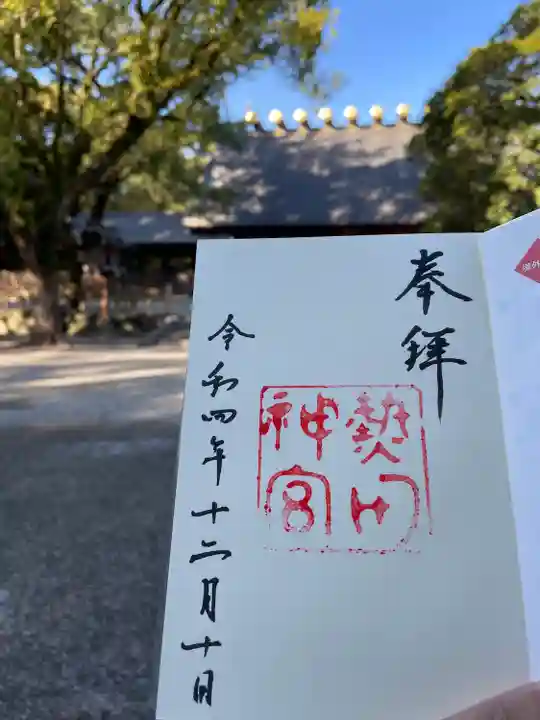 奉拝
熱田
神宮
令和四年十二月十日